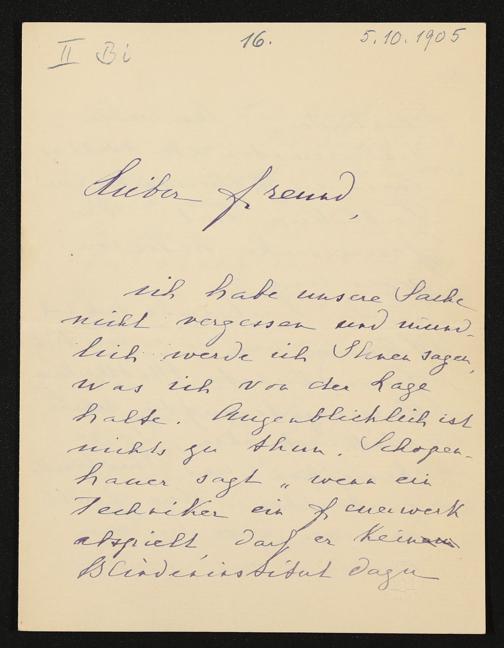 II Bi 16. 5.10.1905
Lieber Freund,
ich habe unsere Sache
nicht vergessen und münd-
lich werde ich Ihnen sagen,
was ich von der Lage
halte. Augenblicklich ist
nichts zu thun. Schopen-
hauer sagt „wenn ein
Techniker ein Feuerwerk
abspielt, darf er kein
Blindeninstitut dazu